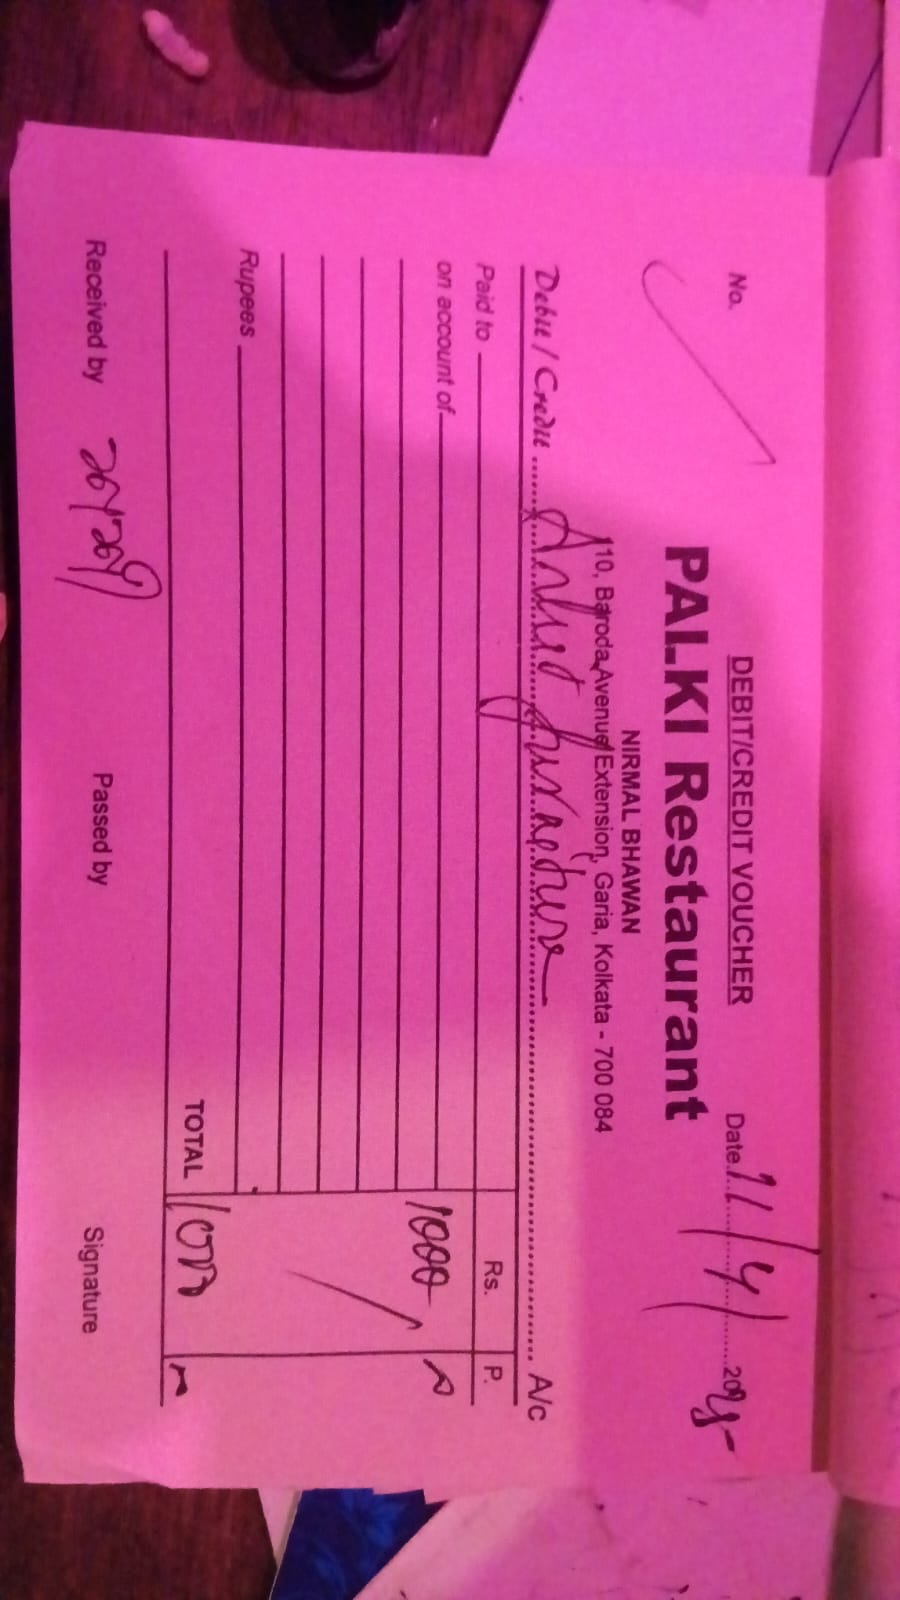 DEBIT/CREDIT VOUCHER
No. Date 11/4/2025
PALKI Restaurant
NIRMAL BHAWAN
110, Baroda Avenue Extension, Garia, Kolkata - 700 084
Debit / Credit A/c
Paid to Rs. P.
on account of 1000
Rupees
TOTAL 1000
Received by Passed by Signature